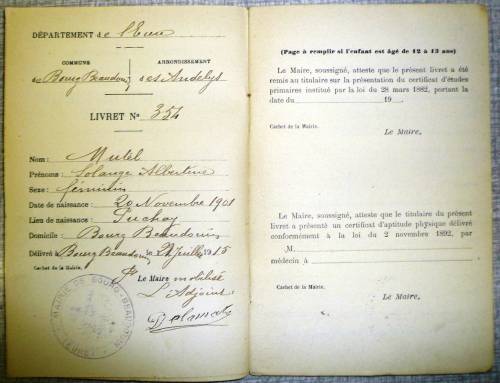 DÉPARTEMENT de l'Eure
COMMUNE
ARRONDISSEMENT
de Bourg Beaudouin
des Andelys
LIVRET No 354
Nom : Mutel
Prénoms : Solange Albertine
Sexe : féminin
Date de naissance : 20 Novembre 1901
Lieu de naissance : Puchay
Domicile : Bourg Beaudouin
Délivré à Bourg Beaudouin, le 21 juillet 1915
Cachet de la Mairie.
Le Maire mobilisé
L'Adjoint
Delamare
MAIRIE DE BOURG-BEAUDOUIN
(EURE)
(Page à remplir si l'enfant est âgé de 12 à 13 ans)
Le Maire, soussigné, atteste que le présent livret a été
remis au titulaire sur la présentation du certificat d'études
primaires institué par la loi du 28 mars 1882, portant la
date du 19 .
Cachet de la Mairie.
Le Maire,
Le Maire, soussigné, atteste que le titulaire du présent
livret a présenté un certificat d'aptitude physique délivré
conformément à la loi du 2 novembre 1892, par
M
médecin à
Cachet de la Mairie.
Le Maire,